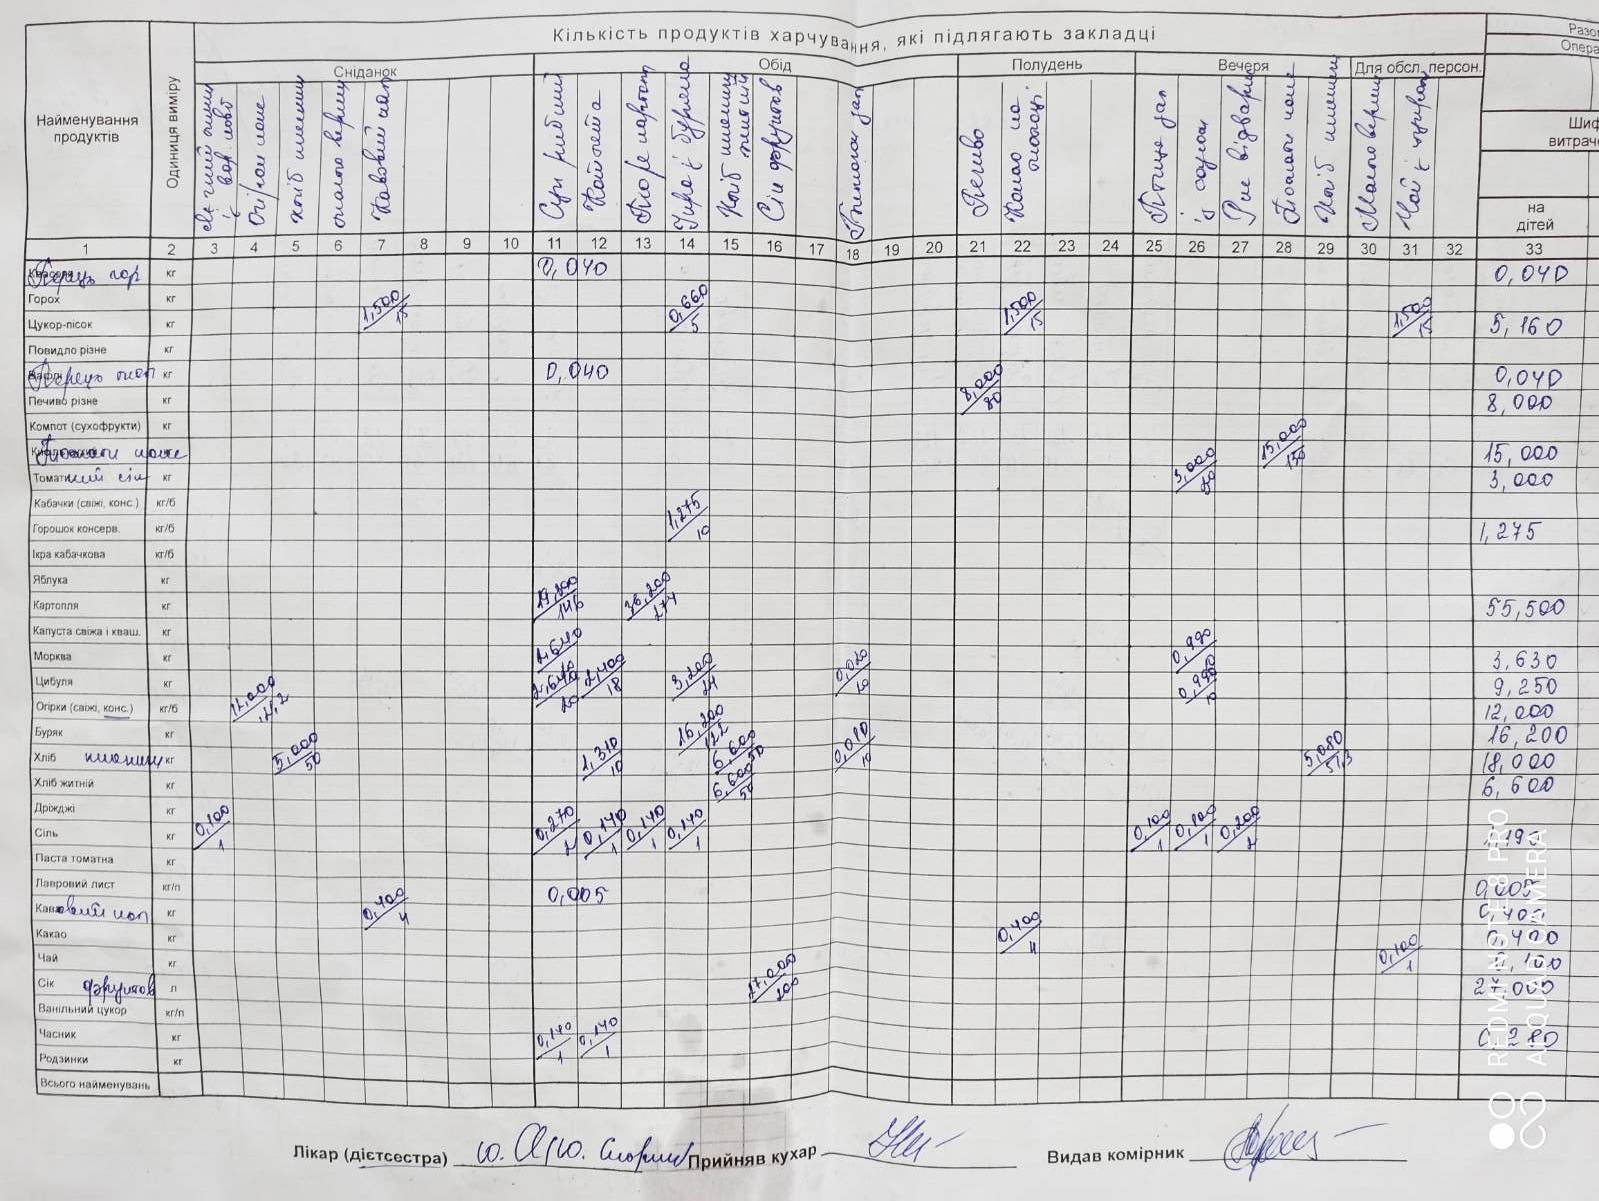 Кількість продуктів харчування, які підлягають закладці
Найменування продуктів
Одиниця виміру
Сніданок
Обід
Полудень
Вечеря
Для обсл. персон.
Разо
Опера
Шиф
витрач
на
дітей
Огірки
хліб
Каховий нап
Суп рибний
Котлета
Пюре картоп
Хліб
Сік фруктов
Печиво
Какао на молоці
Птиця зап
із соусом
Рис відварн
Хліб
Чай з цукром
1 2 3 4 5 6 7 8 9 10 11 12 13 14 15 16 17 18 19 20 21 22 23 24 25 26 27 28 29 30 31 32 33
Перець гор кг 0,040 0,040
Горох кг
Цукор-пісок кг 1,500/15 0,660/5 1,500/15 1,500/15 5,160
Повидло різне кг
Перець кг 0,040 0,040
Печиво різне кг 8,000/80 8,000
Компот (сухофрукти) кг
Томати кг 15,000/150 15,000
Томатний сік кг 3,000 3,000
Кабачки (свіжі, конс.) кг/б
Горошок консерв. кг/б 1,275/10 1,275
Ікра кабачкова кг/б
Яблука кг
Картопля кг 19,300/146 36,200/274 55,500
Капуста свіжа і кваш. кг
Морква кг 2,640 0,990 3,630
Цибуля кг 2,640/20 2,400/18 3,200/24 0,020/10 0,990/10 9,250
Огірки (свіжі, конс.) кг/б 12,000 12,000
Буряк кг 16,200/122 16,200
Хліб пшенич кг 5,000/50 1,310/10 6,600/50 0,010/10 5,080/51,3 18,000
Хліб житній кг 6,600/50 6,600
Дріжджі кг
Сіль кг 0,100/1 0,270/2 0,140/1 0,140/1 0,140/1 0,100/1 0,100/1 0,200/2 1,190
Паста томатна кг
Лавровий лист кг/п 0,005 0,005
Кавовий нап кг 0,400/4 0,400
Какао кг 0,400/4 0,400
Чай кг 0,100/1 0,100
Сік фруктов л 27,000/200 27,000
Ванільний цукор кг/п
Часник кг 0,140/1 0,140/1 0,280
Родзинки кг
Всього найменувань
Лікар (дієтсестра)
Прийняв кухар
Видав комірник
REDMI NOTE 8 PRO
AI QUAD CAMERA